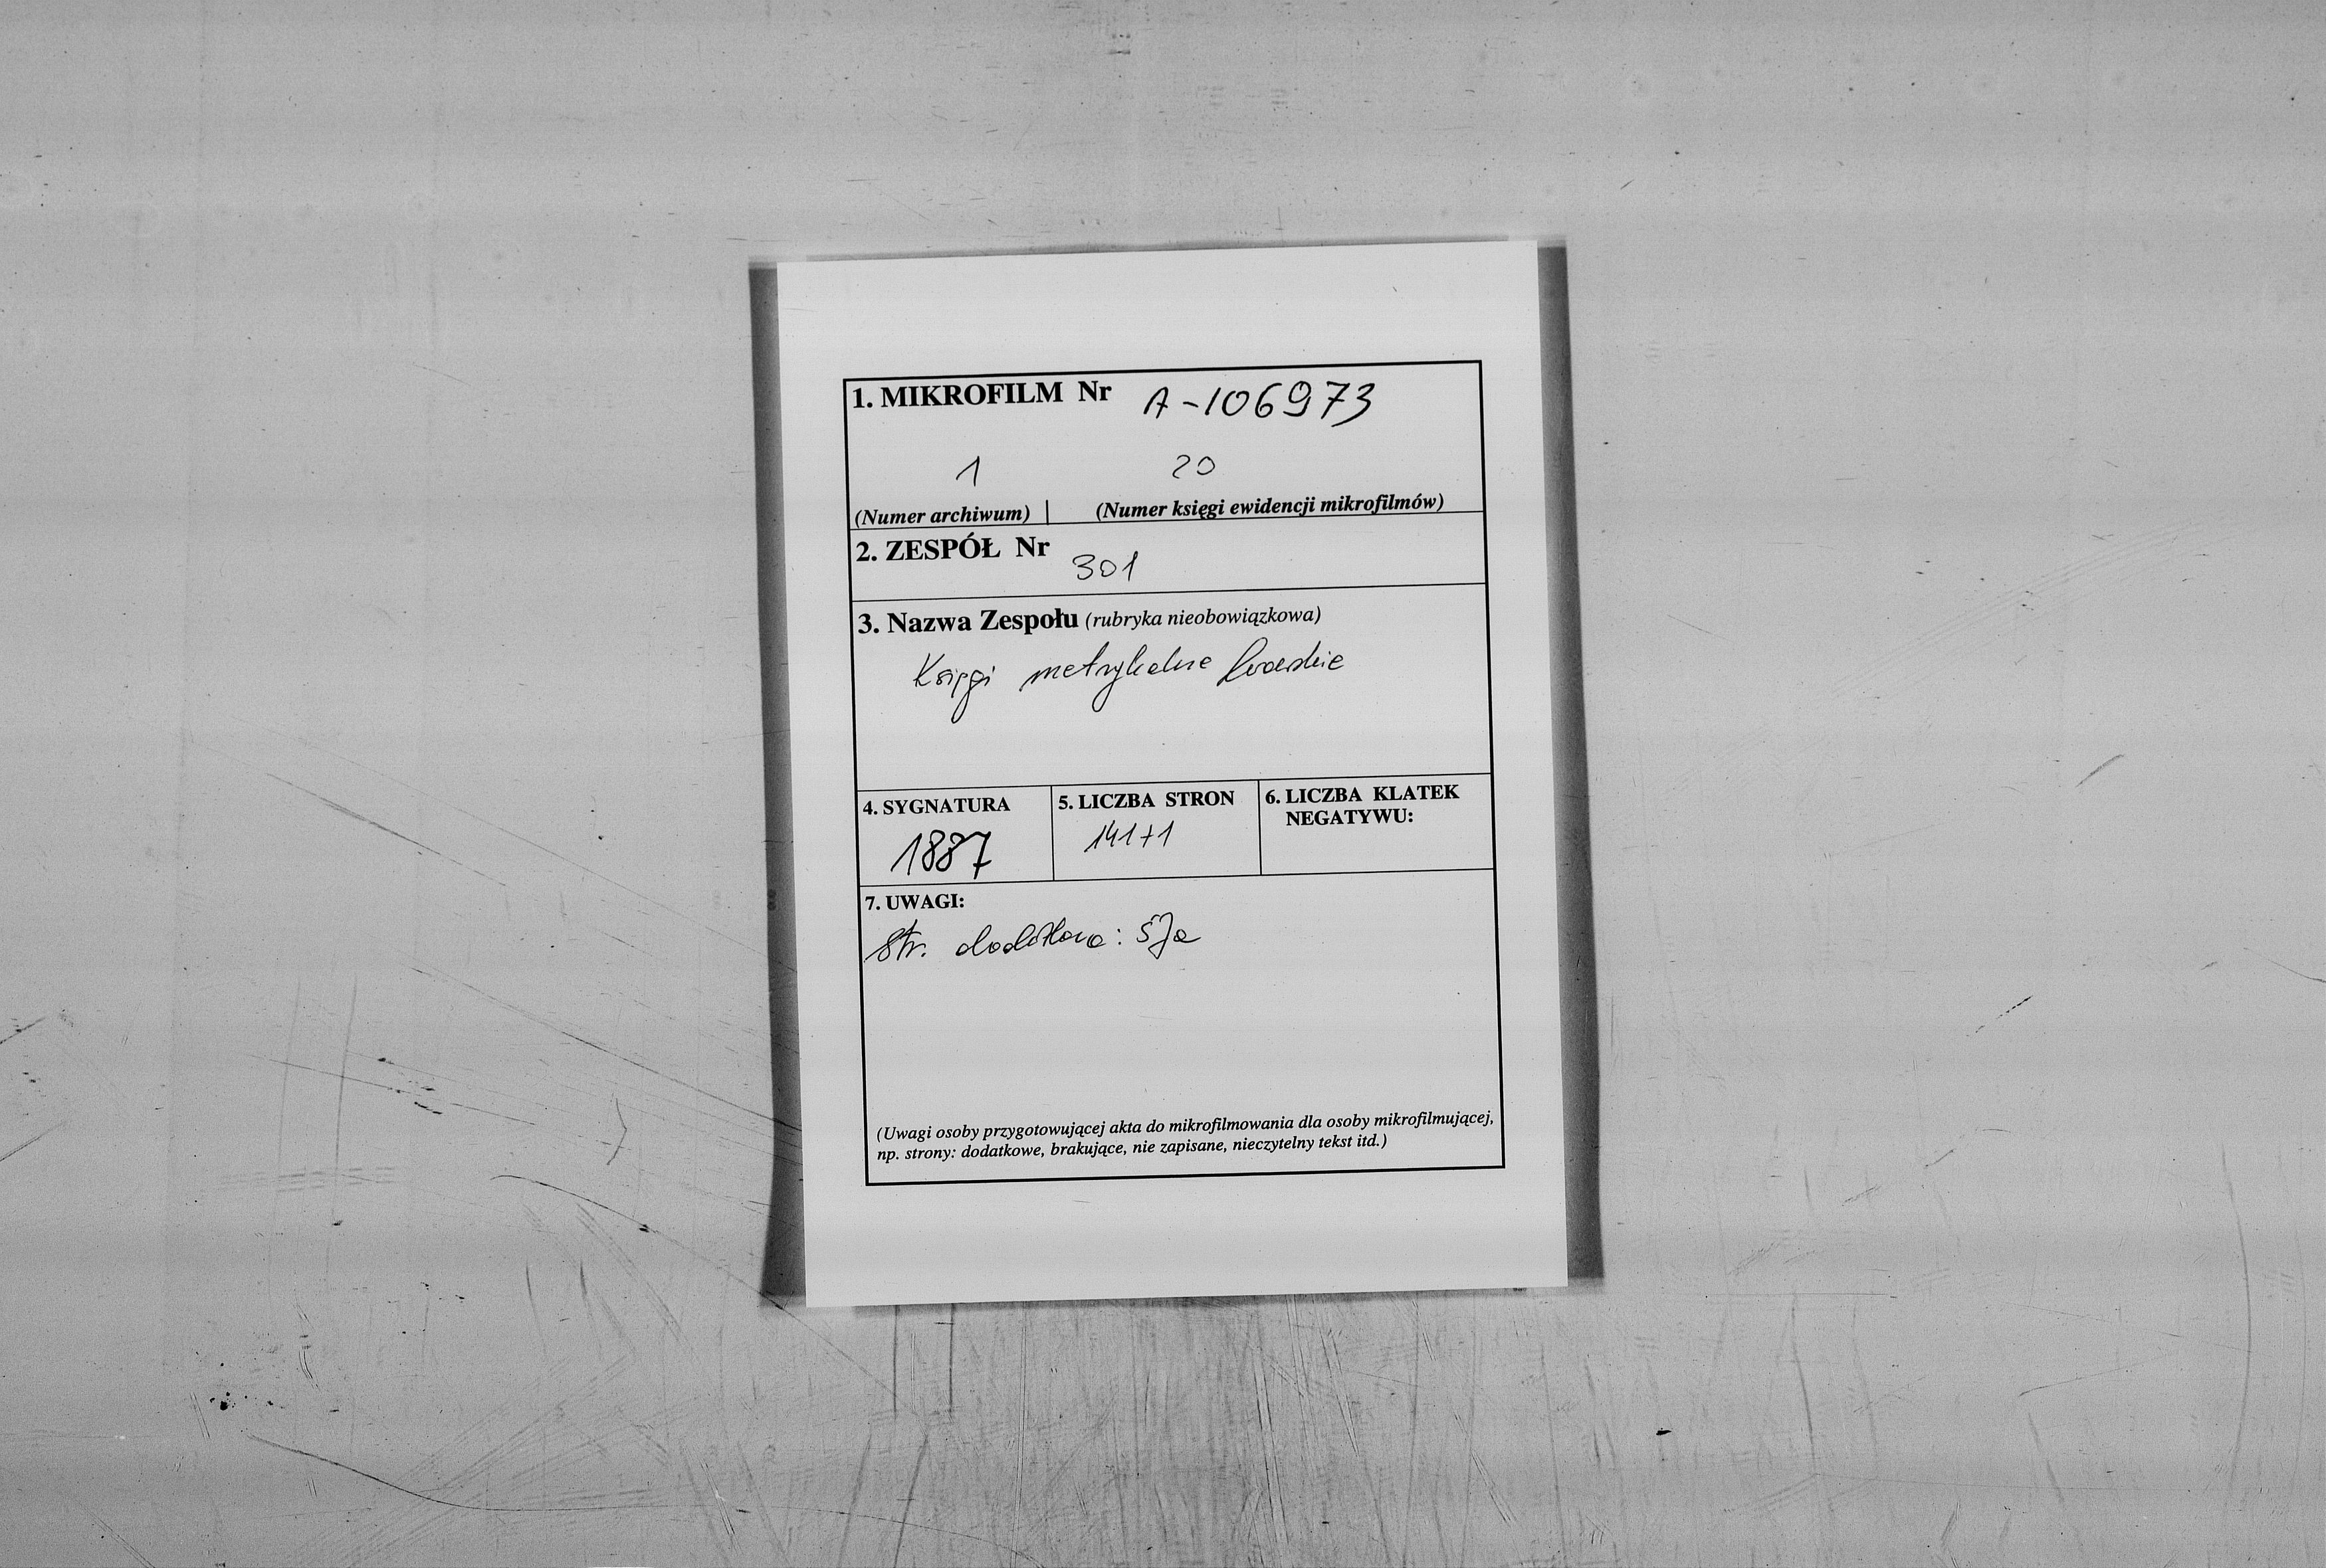 1. MIKROFILM Nr A-106973
1 20
(Numer archiwum) | (Numer księgi ewidencji mikrofilmów)
2. ZESPÓŁ Nr 301
3. Nazwa Zespołu (rubryka nieobowiązkowa)
Księgi metrykalne
4. SYGNATURA 5. LICZBA STRON 6. LICZBA KLATEK
NEGATYWU:
1887 141+1
7. UWAGI:
Str. dodatkowa: 57a
(Uwagi osoby przygotowującej akta do mikrofilmowania dla osoby mikrofilmującej,
np. strony: dodatkowe, brakujące, nie zapisane, nieczytelny tekst itd.)